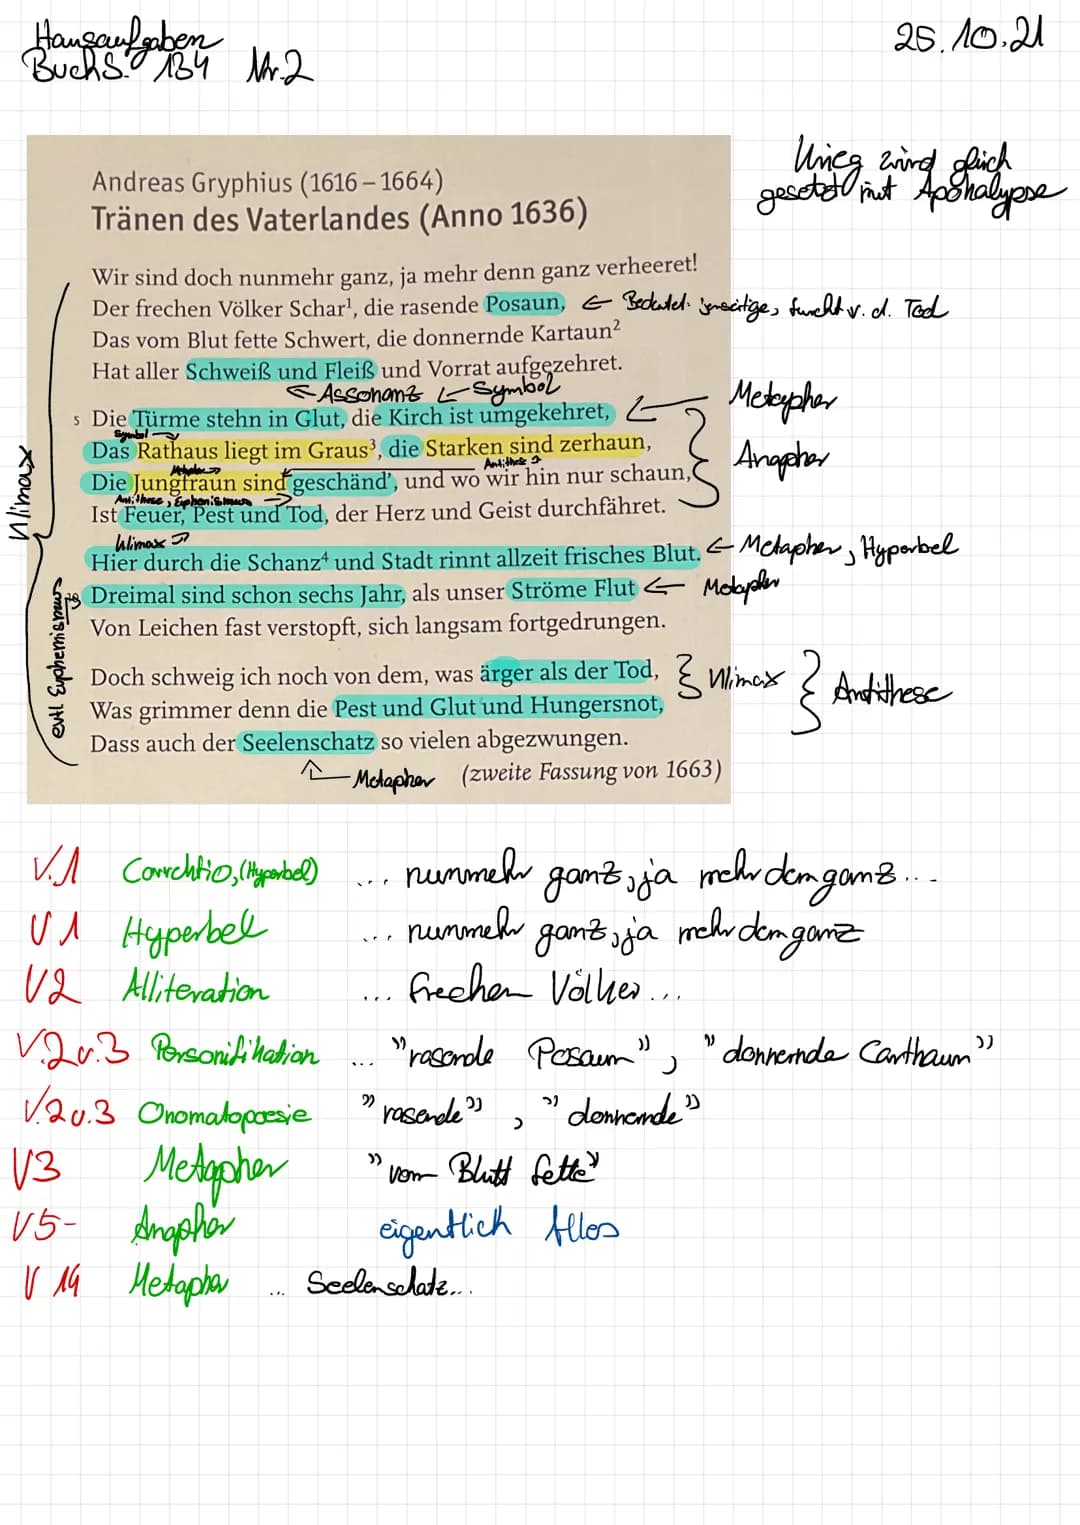 Hausaufgaben
Buch S. 134 Nr. 2
25.10.21
Krieg wird gleich
gesetzt mit Apokalypse
Andreas Gryphius (1616–1664)
Tränen des Vaterlandes (Anno 1636)
Wir sind doch nunmehr ganz, ja mehr denn ganz verheeret!
Der frechen Völker Schar¹, die rasende Posaun, ← Bedeutet: jenseitige, furcht v. d. Tod
Das vom Blut fette Schwert, die donnernde Kartaun²
Hat aller Schweiß und Fleiß und Vorrat aufgezehret.
← Assonanz ← Symbol
5 Die Türme stehn in Glut, die Kirch ist umgekehret, ← Metapher
Symbol
Das Rathaus liegt im Graus³, die Starken sind zerhaun, Anapher
Metapher Antithese
Die Jungfraun sind geschänd', und wo wir hin nur schaun,
Antithese, Euphemismus →
Ist Feuer, Pest und Tod, der Herz und Geist durchfähret.
Klimax
Hier durch die Schanz⁴ und Stadt rinnt allzeit frisches Blut. ← Metapher, Hyperbel
10 Dreimal sind schon sechs Jahr, als unser Ströme Flut ← Metapher
Von Leichen fast verstopft, sich langsam fortgedrungen.
Doch schweig ich noch von dem, was ärger als der Tod, } Klimax } Antithese
Was grimmer denn die Pest und Glut und Hungersnot,
Dass auch der Seelenschatz so vielen abgezwungen.
Metapher (zweite Fassung von 1663)
Klimax
evtl Euphemismus
V.1 Correchtio, (Hyperbel) ... nunmehr ganz, ja mehr denn ganz ...
V1 Hyperbell ... nunmehr ganz, ja mehr denn ganz
V2 Alliteration ... frechen Völker ...
V.2u.3 Personifikation ... "rasende Posaun", "donnernde Canthaun"
V.2u.3 Onomatopoesie "rasende", "donnernde"
V3 Metapher "vom Blutt fette"
V5- Anapher eigentlich Alles
V 14 Metapher ... Seelenschatz...